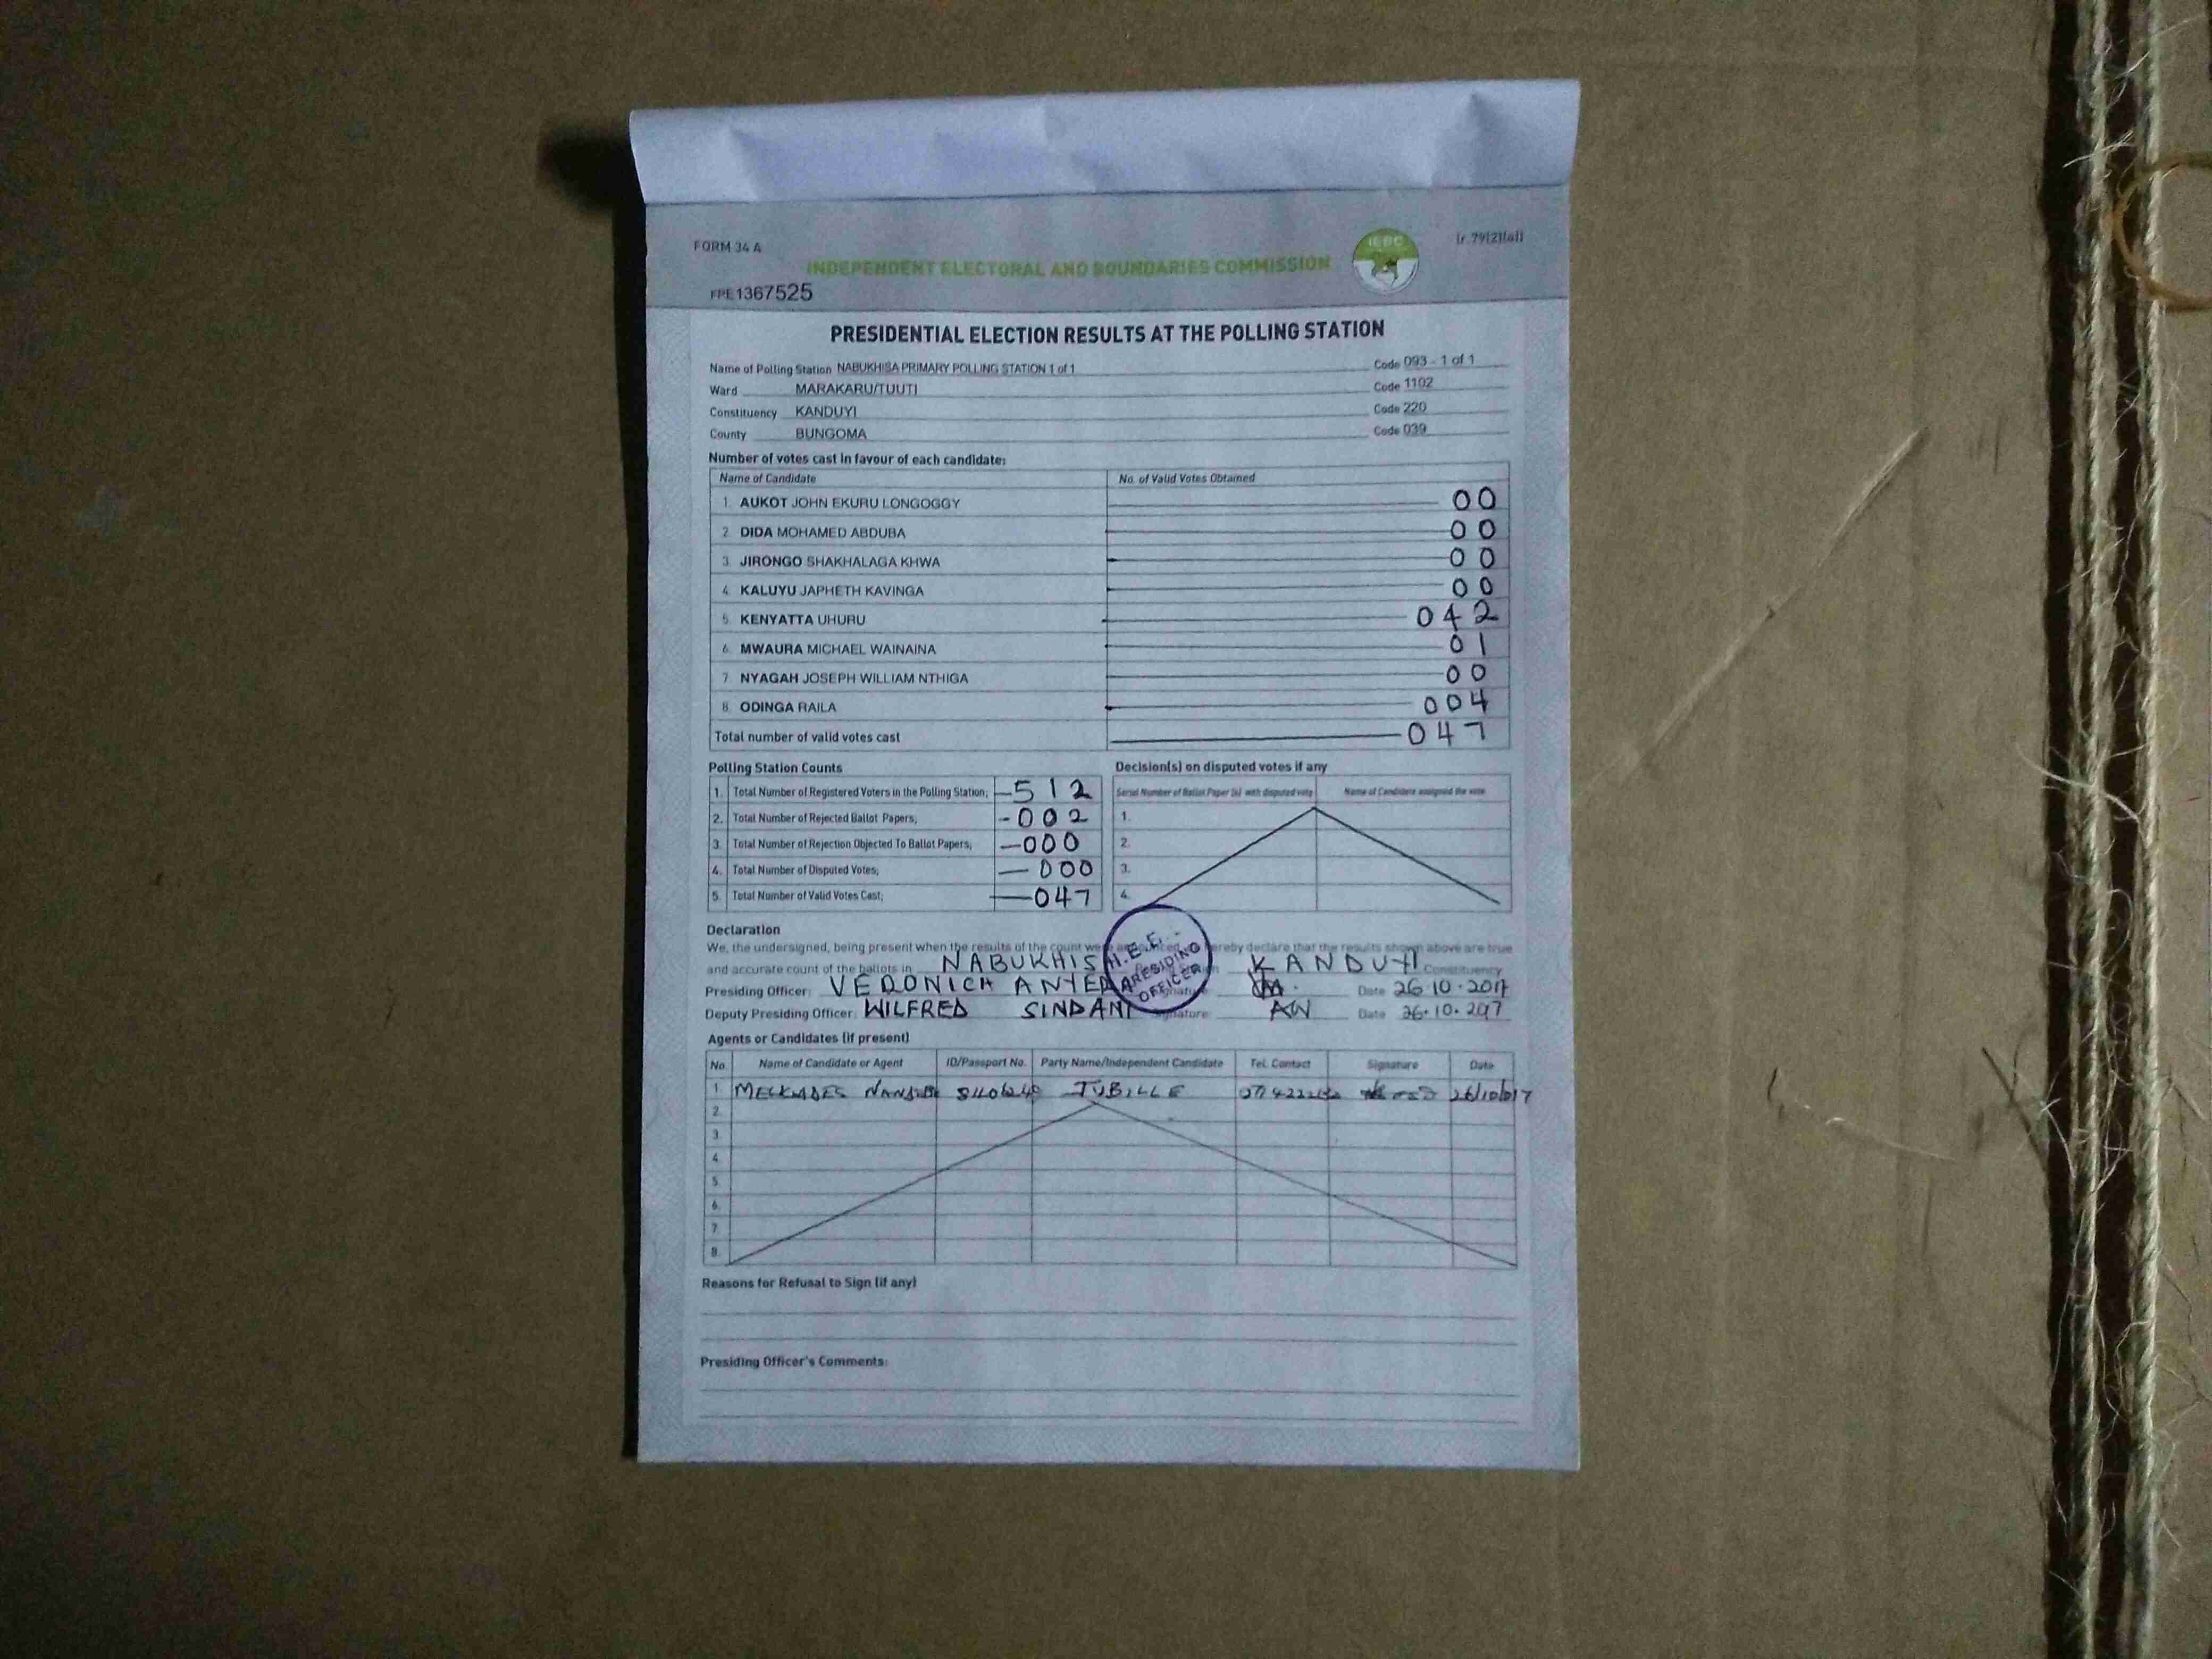 FORM 34 A
(r. 79(2)(a))
IEBC
INDEPENDENT ELECTORAL AND BOUNDARIES COMMISSION
FPE1367525
PRESIDENTIAL ELECTION RESULTS AT THE POLLING STATION
Name of Polling Station NABUKHISA PRIMARY POLLING STATION 1 of 1 Code 093 - 1 of 1
Ward MARAKARU/TUUTI Code 1102
Constituency KANDUYI Code 220
County BUNGOMA Code 039
Number of votes cast in favour of each candidate:
Name of Candidate No. of Valid Votes Obtained
1. AUKOT JOHN EKURU LONGOGGY 00
2. DIDA MOHAMED ABDUBA 00
3. JIRONGO SHAKHALAGA KHWA 00
4. KALUYU JAPHETH KAVINGA 00
5. KENYATTA UHURU 042
6. MWAURA MICHAEL WAINAINA 01
7. NYAGAH JOSEPH WILLIAM NTHIGA 00
8. ODINGA RAILA 004
Total number of valid votes cast 047
Polling Station Counts
1. Total Number of Registered Voters in the Polling Station; 512
2. Total Number of Rejected Ballot Papers; 002
3. Total Number of Rejection Objected To Ballot Papers; 000
4. Total Number of Disputed Votes; 000
5. Total Number of Valid Votes Cast; 047
Decision(s) on disputed votes if any
Serial Number of Ballot Paper (s) with disputed vote Name of Candidate assigned the vote
1.
2.
3.
4.
Declaration
We, the undersigned, being present when the results of the count were announced, do hereby declare that the results shown above are true
and accurate count of the ballots in NABUKHIS KANDUYI Constituency
PRESIDING
OFFICER
Presiding Officer: Signature: Date 26.10.2017
Deputy Presiding Officer: WILFRED SINDANI Signature: AW Date 26.10.
Agents or Candidates (if present)
No. Name of Candidate or Agent ID/Passport No. Party Name/Independent Candidate Tel. Contact Signature Date
1. JUBILLE
2.
3.
4.
5.
6.
7.
8.
Reasons for Refusal to Sign (if any)
Presiding Officer's Comments: